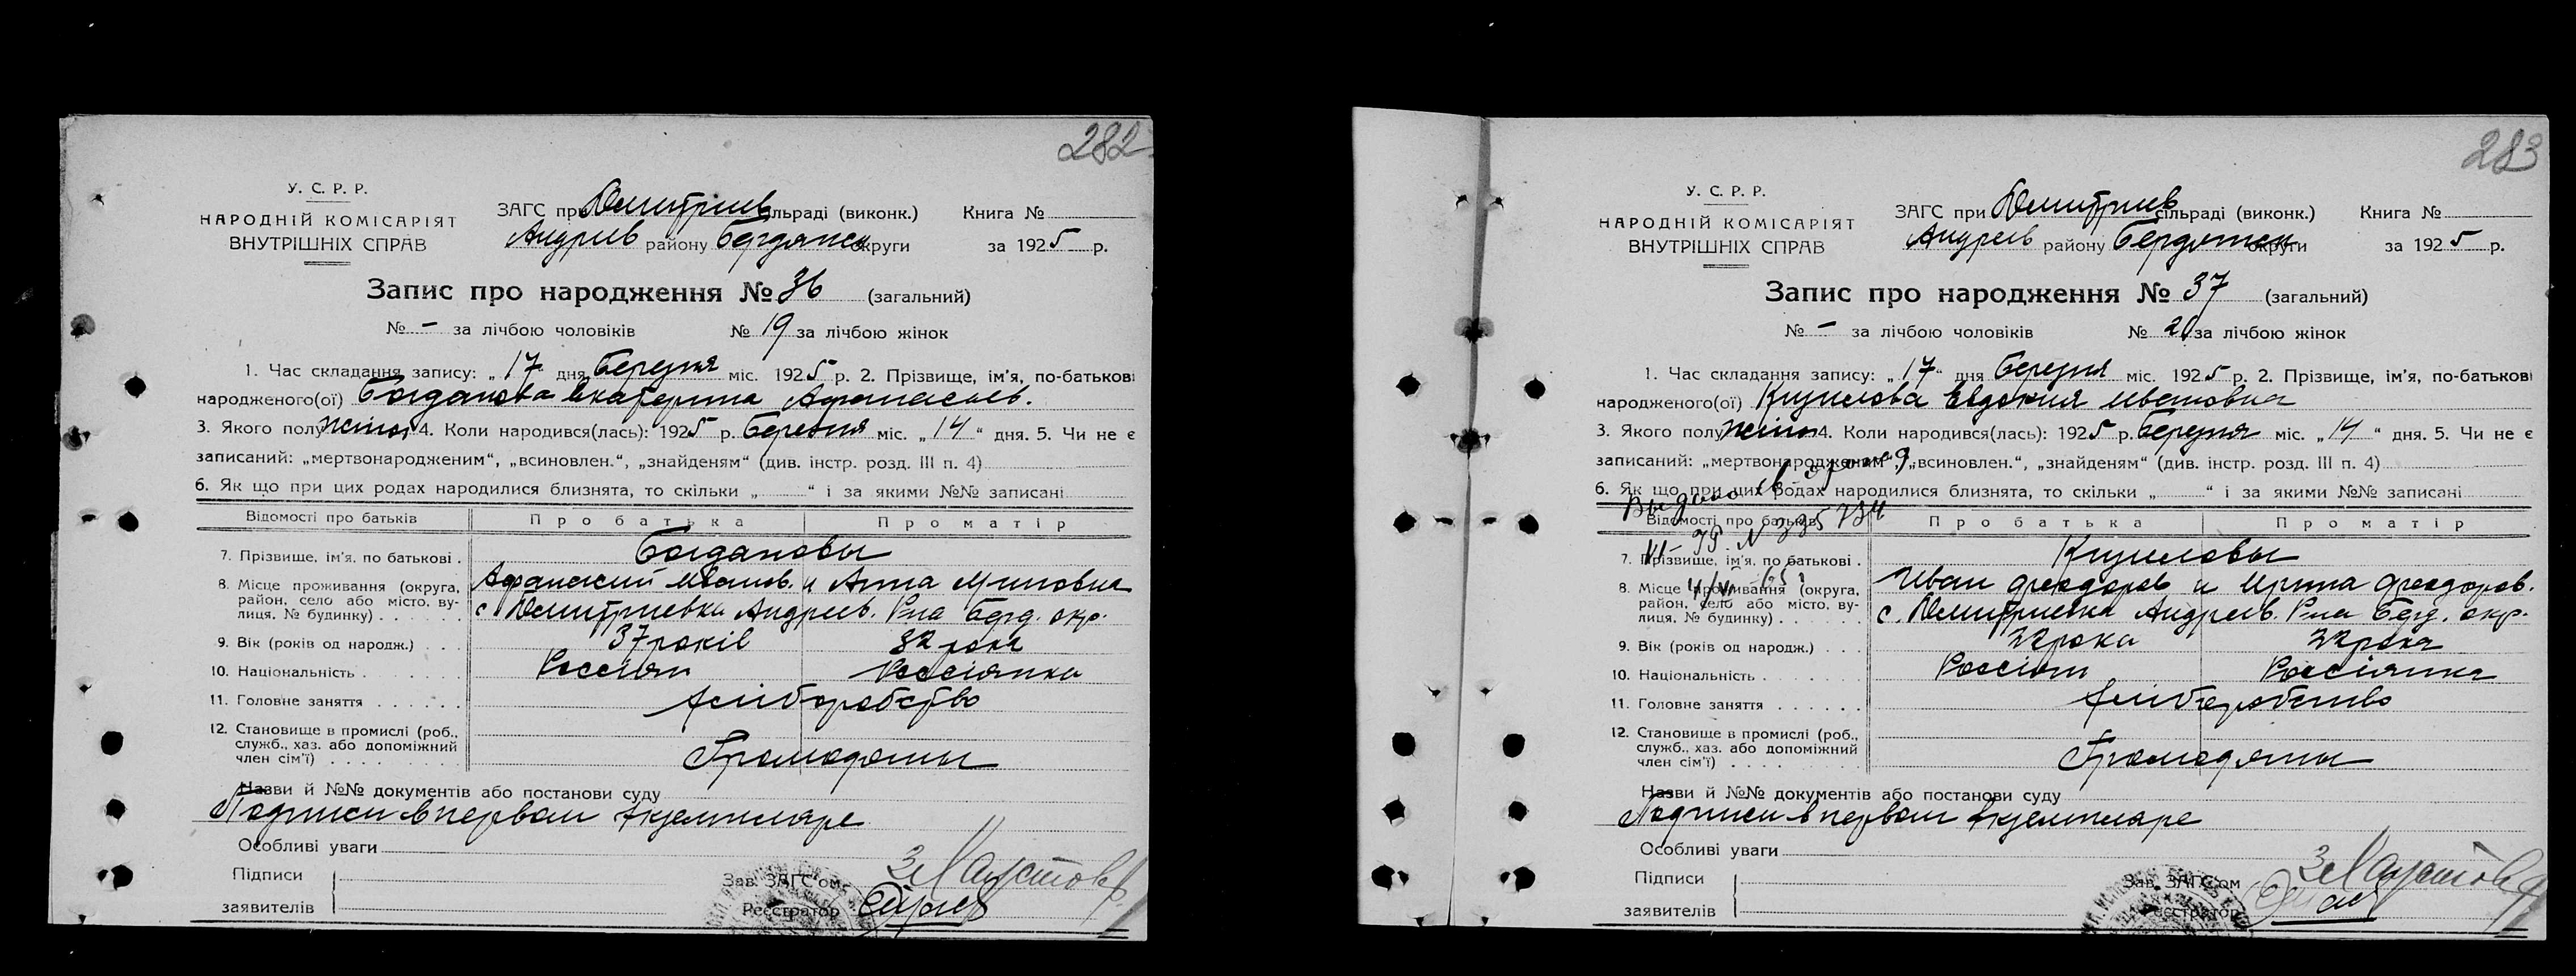 282
У. С. Р. Р.
НАРОДНІЙ КОМІСАРІЯТ
ВНУТРІШНІХ СПРАВ
ЗАГС при Дмитриев сільраді (виконк.) Книга №
Андреев району Бердянск округи за 1925 р.
Запис про народження № 36 (загальний)
№ – за лічбою чоловіків № 19 за лічбою жінок
1. Час складання запису: „17" дня березня міс. 1925 р. 2. Прізвище, ім'я, по-батькові
народженого(ої) Богданова Екатерина Афанасьев.
3. Якого полу жіноч 4. Коли народився(лась): 1925 р. березня міс. „14" дня. 5. Чи не є
записаний: „мертвонародженим", „всиновлен.", „знайденям" (див. інстр. розд. III п. 4)
6. Як що при цих родах народилися близнята, то скільки „ " і за якими №№ записані
Відомості про батьків Про батька Про матір
7. Прізвище, ім'я, по батькові . Богдановы
8. Місце проживання (округа, район, село або місто, вулиця, № будинку) Афанасий Иванов. и Анна Миновна
с. Дмитриевка Андреев. Р-на Берд. окр.
9. Вік (років од народж.) . . . 37 років 32 рока
10. Національність Россіян Россіянка
11. Головне заняття хліборобство
12. Становище в промислі (роб., служб., хаз. або допоміжний член сім'ї) Громодяны
Назви й №№ документів або постанови суду
Подписи в первом екземпляре
Особливі уваги
Підписи
заявителів
Зав. ЗАГС'ом
Реєстратор
283
У. С. Р. Р.
НАРОДНІЙ КОМІСАРІЯТ
ВНУТРІШНІХ СПРАВ
ЗАГС при Дмитриев сільраді (виконк.) Книга №
Андреев району Бердянск округи за 1925 р.
Запис про народження № 37 (загальний)
№ – за лічбою чоловіків № 20 за лічбою жінок
1. Час складання запису: „17" дня березня міс. 1925 р. 2. Прізвище, ім'я, по-батькові
народженого(ої) Евдокия Ивановна
3. Якого полу жіноч 4. Коли народився(лась): 1925 р. березня міс. „14" дня. 5. Чи не є
записаний: „мертвонародженим", „всиновлен.", „знайденям" (див. інстр. розд. III п. 4)
6. Як що при цих родах народилися близнята, то скільки „ " і за якими №№ записані
Відомості про батьків Про батька Про матір
7. Прізвище, ім'я, по батькові .
8. Місце проживання (округа, район, село або місто, вулиця, № будинку) Иван Феодоров и Ирина Феодоров.
с. Дмитриевка Андреев. Р-на Берд. окр.
9. Вік (років од народж.) . . . 22 рока 22 рока
10. Національність Россіян Россіянка
11. Головне заняття хліборобство
12. Становище в промислі (роб., служб., хаз. або допоміжний член сім'ї) Громодяны
Назви й №№ документів або постанови суду
Подписи в первом екземпляре
Особливі уваги
Підписи
заявителів
Зав. ЗАГС'ом
Реєстратор